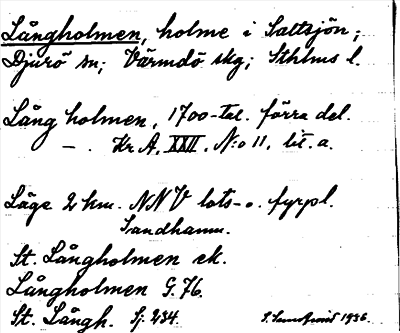 Långholmen, holme i Saltsjön;
Djurö sn; Värmdö skg; Sthlms l.
Lång holmen, 1700-tal. förra del.
— . Kr A, XXII, N:o 11, lit. a.
Läge 2 km. NNV lots- o. fyrpl.
Sandhamn.
St. Långholmen ek.
Långholmen G. 76.
St. Långh. Sj. 234.
1936.